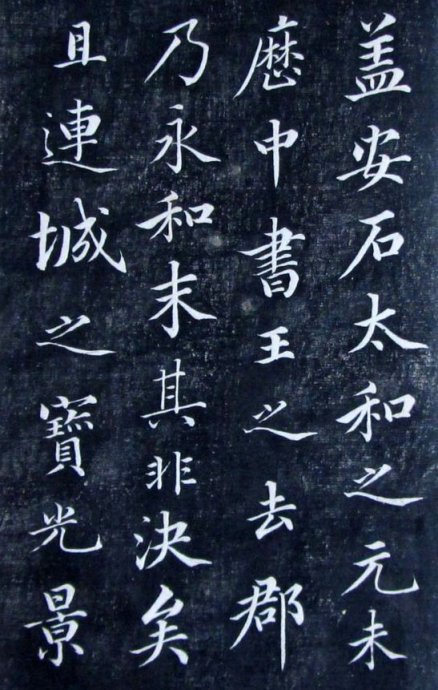 盖安石太和之元未
歴中書王之去郡
乃永和末其非決矣
且連城之寶光景